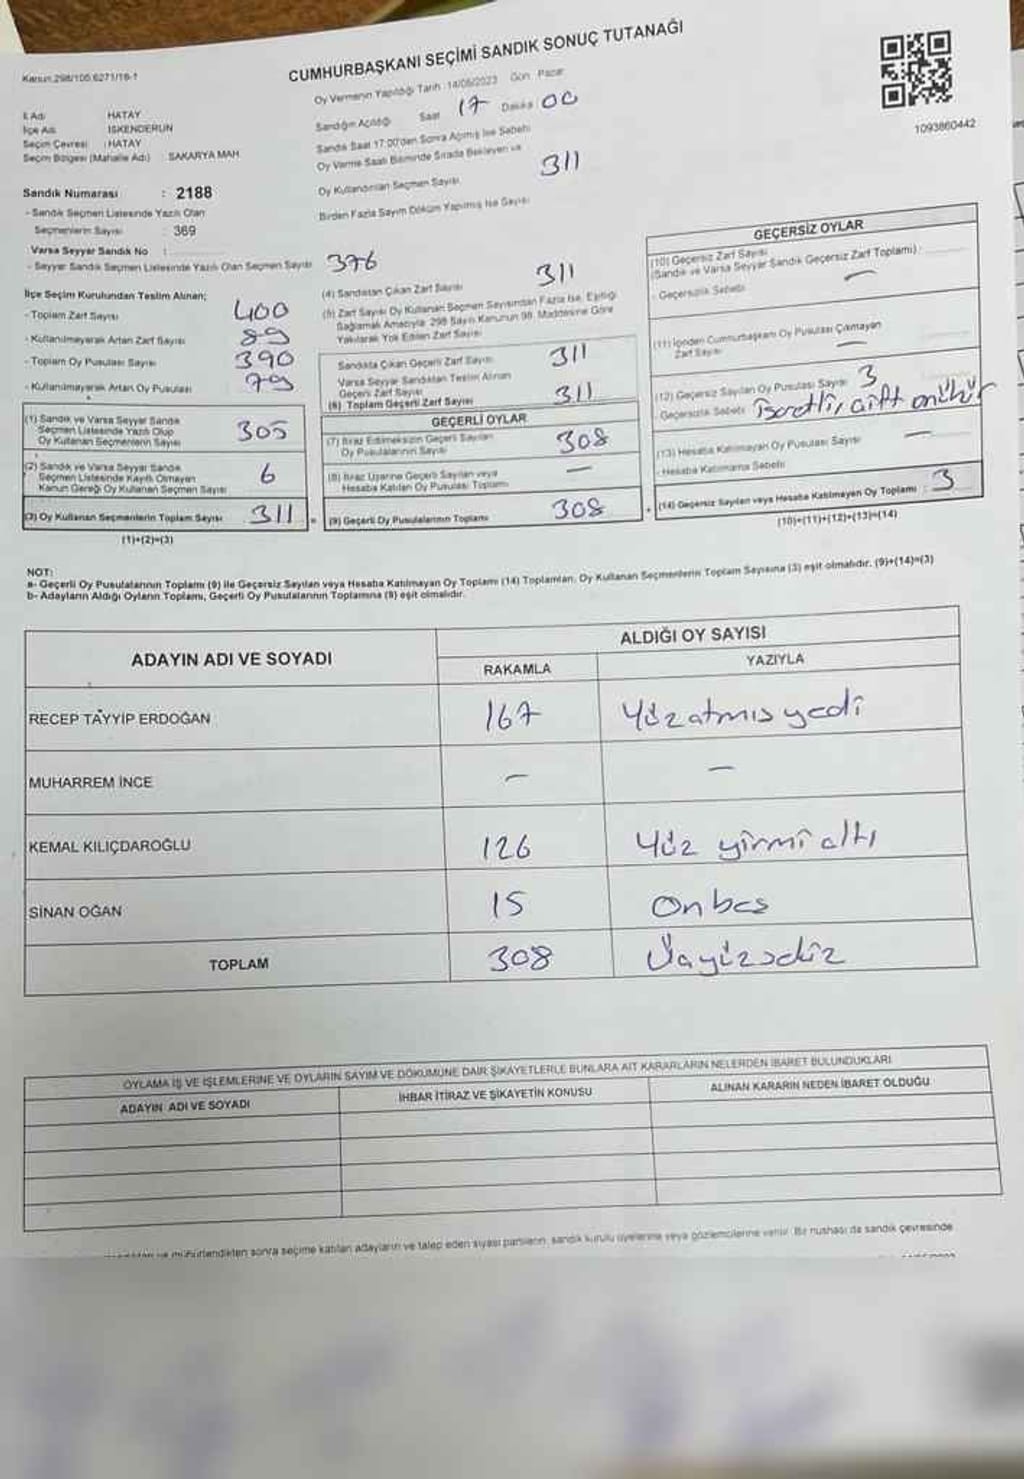 CUMHURBAŞKANI SEÇİMİ SANDIK SONUÇ TUTANAĞI
Kanun:298/105 6271/16-1
Oy Vermenin Yapıldığı Tarih : 14/05/2023 Gün : Pazar
Sandığın Açıldığı Saat 17 Dakika 00
Sandık Saat 17:00'den Sonra Açılmış İse Sebebi
Oy Verme Saati Bitiminde Sırada Bekleyen ve
Oy Kullandırılan Seçmen Sayısı 311
Birden Fazla Sayım Döküm Yapılmış İse Sayısı
1093860442
İl Adı HATAY
İlçe Adı İSKENDERUN
Seçim Çevresi : HATAY
Seçim Bölgesi (Mahalle Adı) : SAKARYA MAH
Sandık Numarası : 2188
- Sandık Seçmen Listesinde Yazılı Olan
Seçmenlerin Sayısı : 369
Varsa Seyyar Sandık No :
- Seyyar Sandık Seçmen Listesinde Yazılı Olan Seçmen Sayısı 376
İlçe Seçim Kurulundan Teslim Alınan;
- Toplam Zarf Sayısı 400
- Kullanılmayarak Artan Zarf Sayısı 89
- Toplam Oy Pusulası Sayısı 390
- Kullanılmayarak Artan Oy Pusulası 79
(1) Sandık ve Varsa Seyyar Sandık
Seçmen Listesinde Yazılı Olup
Oy Kullanan Seçmenlerin Sayısı 305
(2) Sandık ve Varsa Seyyar Sandık
Seçmen Listesinde Kayıtlı Olmayan
Kanun Gereği Oy Kullanan Seçmen Sayısı 6
(3) Oy Kullanan Seçmenlerin Toplam Sayısı 311 =
(1)+(2)=(3)
(4) Sandıktan Çıkan Zarf Sayısı 311
(5) Zarf Sayısı Oy Kullanan Seçmen Sayısından Fazla İse, Eşitliği
Sağlamak Amacıyla 298 Sayılı Kanunun 98. Maddesine Göre
Yakılarak Yok Edilen Zarf Sayısı
Sandıkta Çıkan Geçerli Zarf Sayısı 311
Varsa Seyyar Sandıktan Teslim Alınan
Geçerli Zarf Sayısı
(6) Toplam Geçerli Zarf Sayısı 311
GEÇERLİ OYLAR
(7) İtiraz Edilmeksizin Geçerli Sayılan
Oy Pusulalarının Sayısı 308
(8) İtiraz Üzerine Geçerli Sayılan veya
Hesaba Katılan Oy Pusulası Toplamı —
(9) Geçerli Oy Pusulalarının Toplamı 308 +
GEÇERSİZ OYLAR
(10) Geçersiz Zarf Sayısı
(Sandık ve Varsa Seyyar Sandık Geçersiz Zarf Toplamı) :
- Geçersizlik Sebebi —
(11) İçinden Cumhurbaşkanı Oy Pusulası Çıkmayan
Zarf Sayısı —
(12) Geçersiz Sayılan Oy Pusulası Sayısı 3
- Geçersizlik Sebebi İşaretli, çift mühür
(13) Hesaba Katılmayan Oy Pusulası Sayısı —
- Hesaba Katılmama Sebebi
(14) Geçersiz Sayılan veya Hesaba Katılmayan Oy Toplamı 3
(10)+(11)+(12)+(13)=(14)
NOT:
a- Geçerli Oy Pusulalarının Toplamı (9) ile Geçersiz Sayılan veya Hesaba Katılmayan Oy Toplamı (14) Toplamları, Oy Kullanan Seçmenlerin Toplam Sayısına (3) eşit olmalıdır. (9)+(14)=(3)
b- Adayların Aldığı Oyların Toplamı, Geçerli Oy Pusulalarının Toplamına (9) eşit olmalıdır.
ADAYIN ADI VE SOYADI
ALDIĞI OY SAYISI
RAKAMLA YAZIYLA
RECEP TAYYİP ERDOĞAN 167 Yüzatmış yedi
MUHARREM İNCE — —
KEMAL KILIÇDAROĞLU 126 Yüz yirmi altı
SİNAN OĞAN 15 Onbeş
TOPLAM 308 Üçyüzsekiz
OYLAMA İŞ VE İŞLEMLERİNE VE OYLARIN SAYIM VE DÖKÜMÜNE DAİR ŞİKAYETLERLE BUNLARA AİT KARARLARIN NELERDEN İBARET BULUNDUKLARI
ADAYIN ADI VE SOYADI İHBAR İTİRAZ VE ŞİKAYETİN KONUSU ALINAN KARARIN NEDEN İBARET OLDUĞU
ve mühürlendikten sonra seçime katılan adayların ve talep eden siyasi partilerin, sandık kurulu üyelerine veya gözlemcilerine verilir. Bir nushası da sandık çevresinde